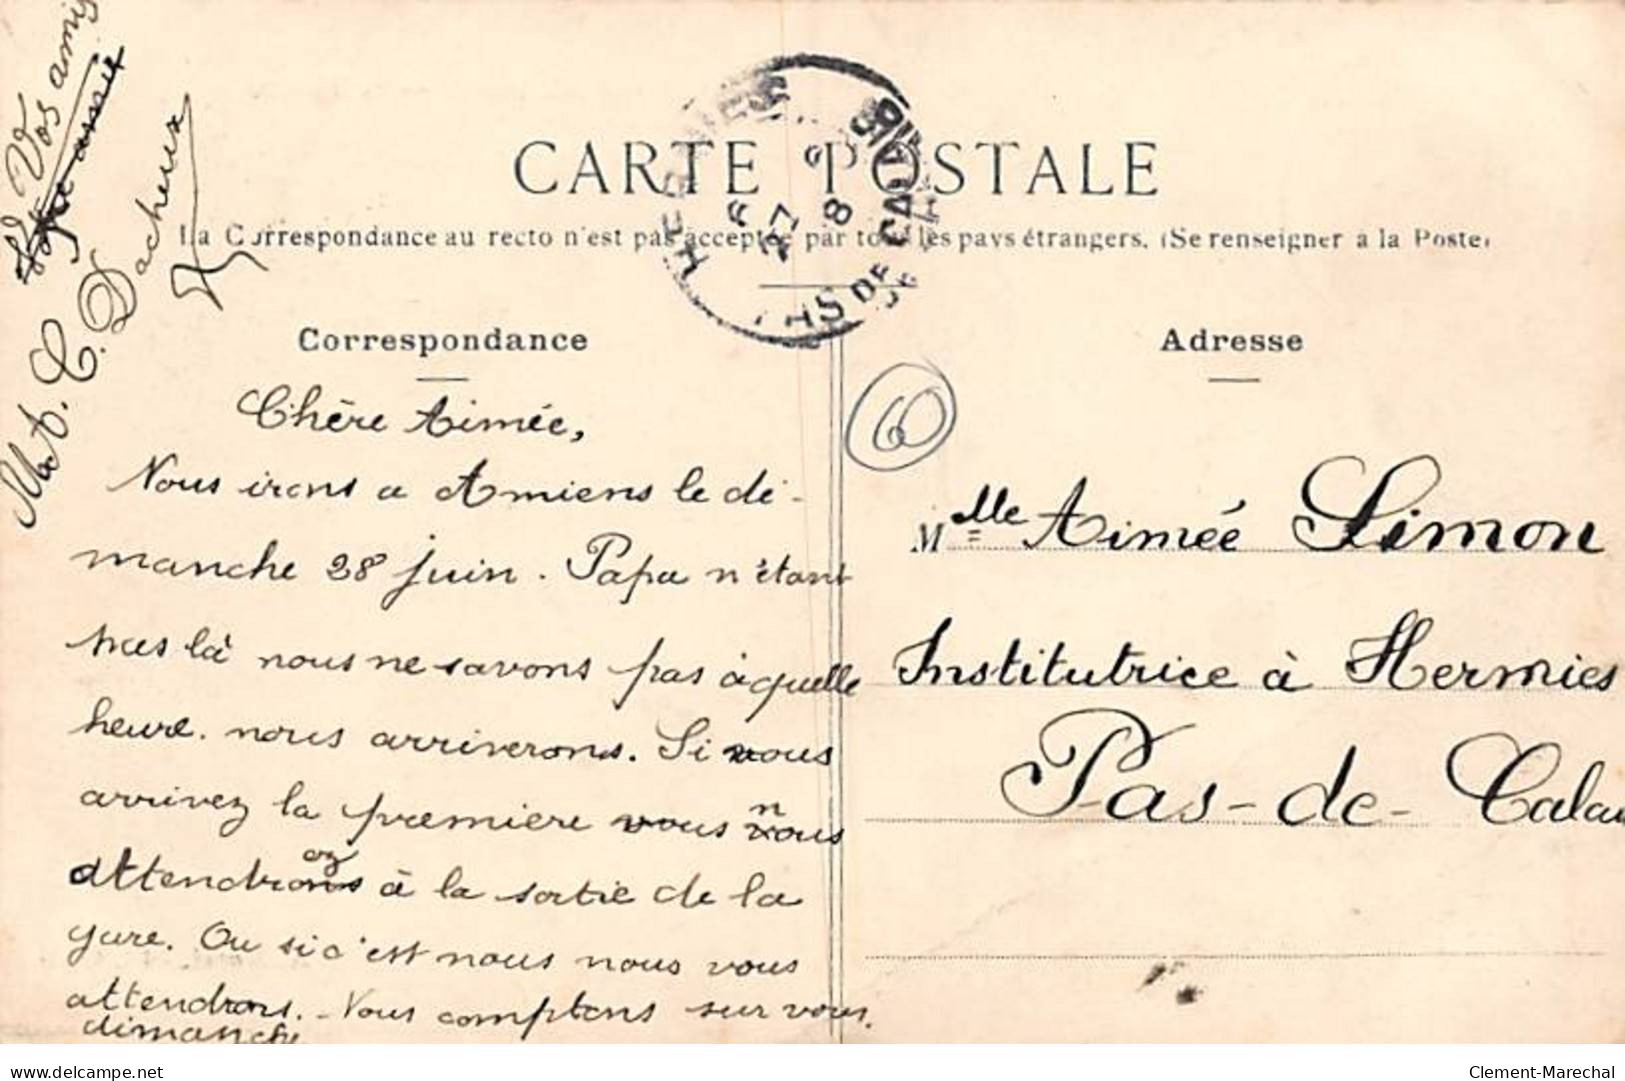 CARTE POSTALE
La Correspondance au recto n'est pas acceptée par tous les pays étrangers. (Se renseigner à la Poste)
HERMIES
27 6 8
PAS DE CALAIS
Correspondance
Chère Aimée,
Nous irons a Amiens le di-
manche 28 juin. Papa n'étant
pas là nous ne savons pas à quelle
heure nous arriverons. Si vous
arrivez la première vous nous
attendrez à la sortie de la
gare. Ou si c'est nous nous vous
attendrons. Nous comptons sur vous
dimanche
Vos amis
M. A. C. Dacheux
60
Adresse
Mlle Aimée Simon
Institutrice à Hermies
Pas-de-Calais
www.delcampe.net
Clement-Marechal